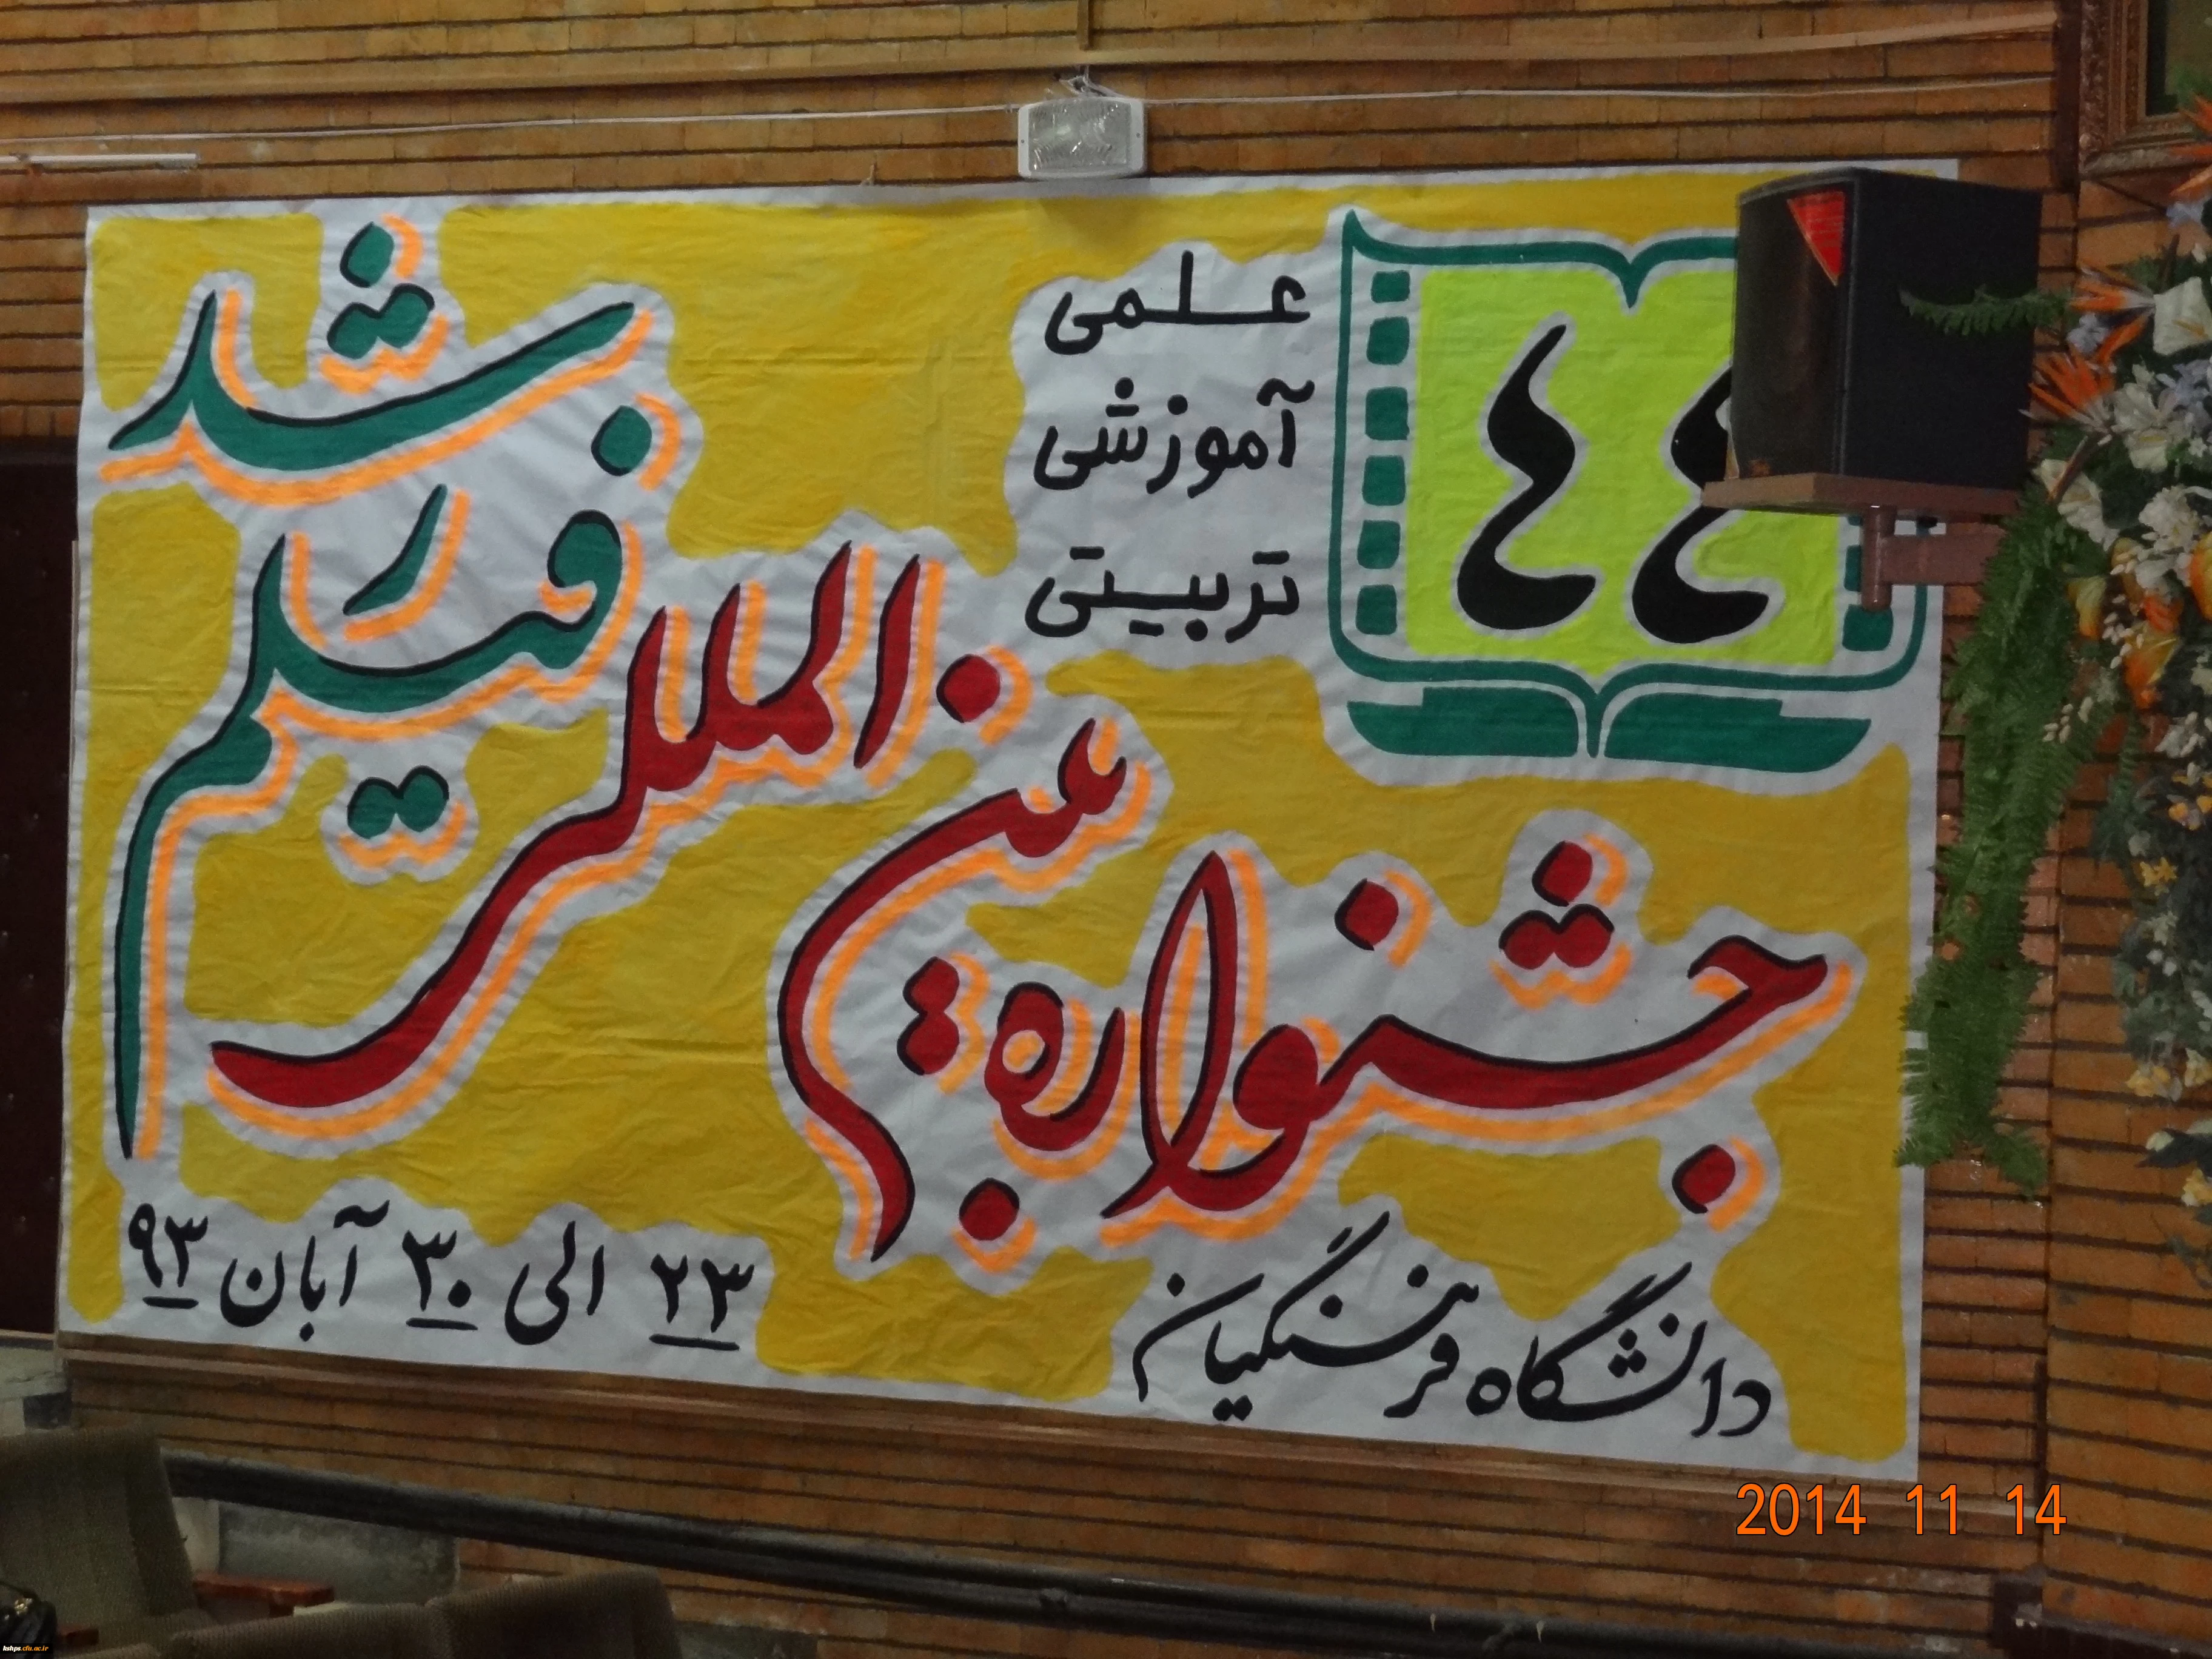 ٤٤
علمی
آموزشی
تربیتی
جشنواره بین المللی فیلم رشد
دانشگاه فرهنگیان
۲۳ الی ۳۰ آبان ۹۳
2014 11 14
hshps.cfu.ac.ir